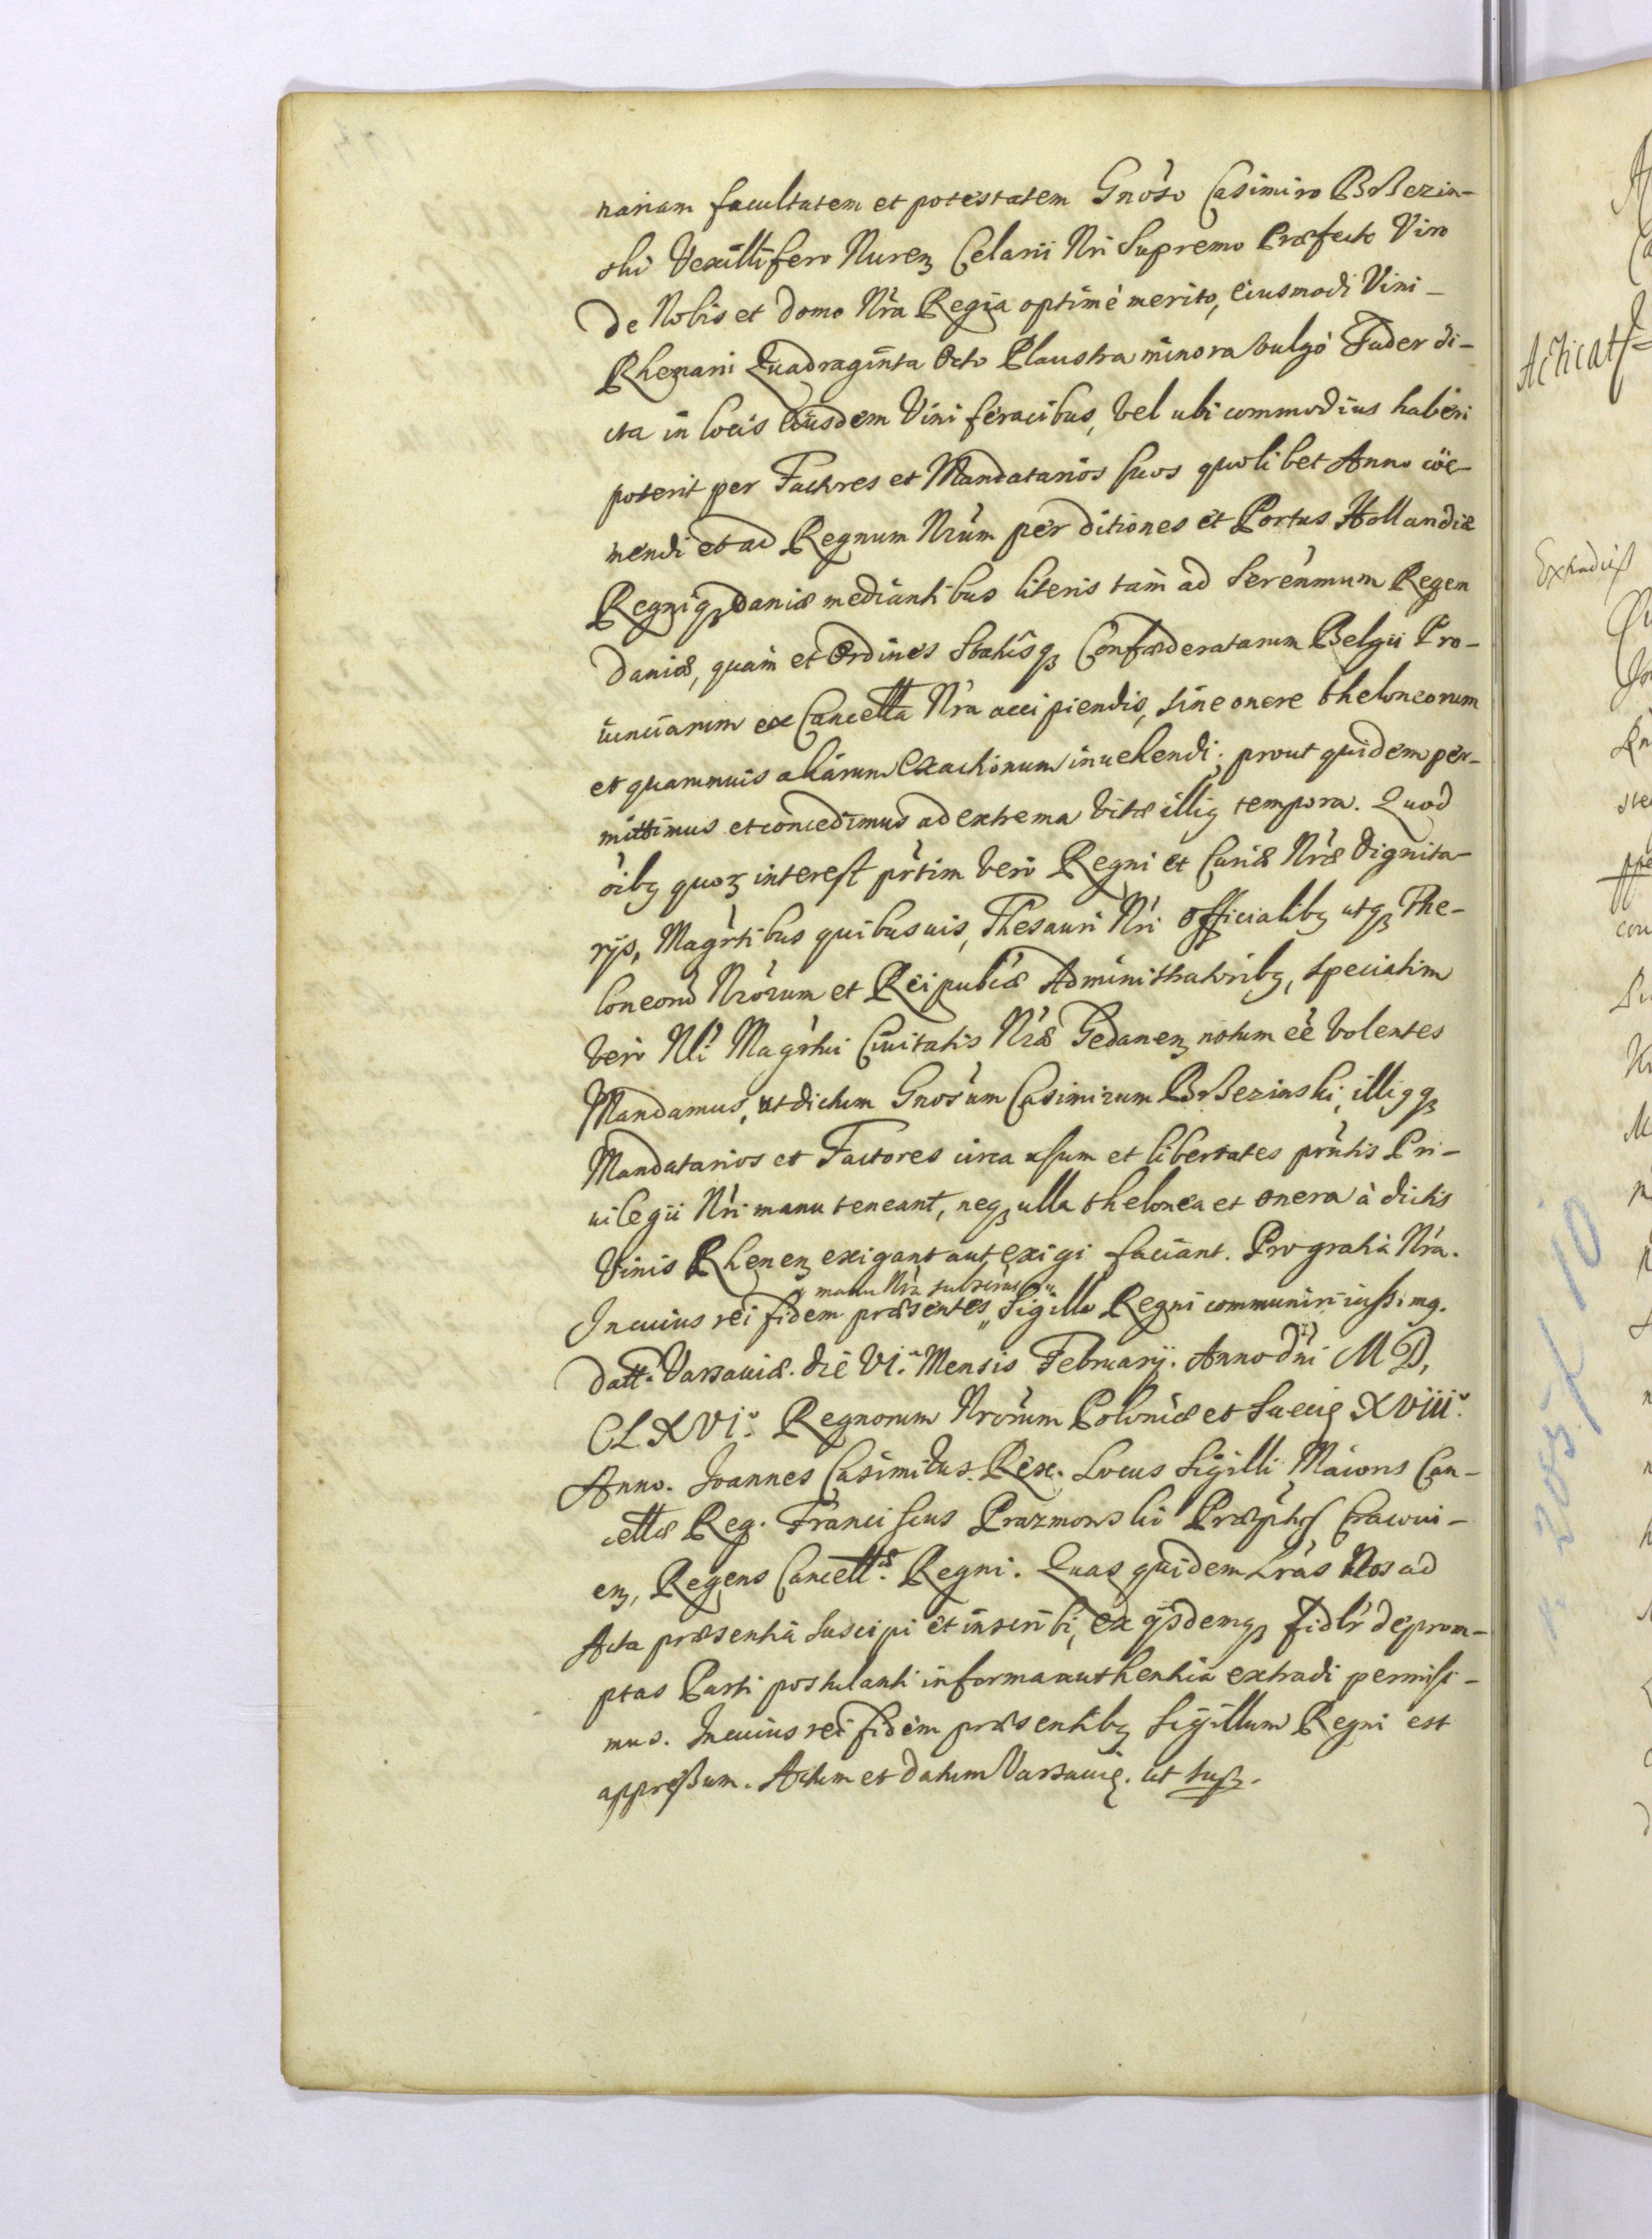 nariam facultatem et potestatem Gnoso Casimiro Brzezin-
ski Vexillifero Nurenz Celarii Nri Supremo Præfecto Viro
de Nobis et domo Nra Regia optimè merito, eiusmodi Vini-
Rhenani Quadraginta Octo Plaustra minora vulgò Fuder di-
cta in locis eiusdem Vini feracibus, vel ubi commodius haberi
poterit per Factores et Mandatarios suos quolibet Anno coë-
mendi et ad Regnum Nrum per ditiones et Portus Hollandiæ
Regniq3 Daniæ mediantibus literis tam ad Serenmum Regem
Daniæ, quam et Ordines Statusq3 Confæderatarum Belgii Pro-
uinciarum ex Cancella Nra accipiendis, sine onere theloneorum
et quarumuis aliarum exactionum inuehendi; prout quidem per-
mittimus et concedimus ad extrema vitæ illiq tempora. Quod
oibq quoz interest prtim vero Regni et Curiæ Nræ Dignita-
rijs, Magrtibus quibusuis, Thesauri Nri officialibq utq3 The-
loneorũ Nrorum et Reipublcæ Administratoribq, speciatim
vero Nli Magrtui Ciuitatis Nræ Gedanenz notum eẽ volentes
Mandamus, ut dictum Gnosum Casimirum Brzezinski, illiqq3
Mandatarios et Factores circa usum et libertates prntis Pri-
uilegii Nri manu teneant, neq3 ulla thelonea et onera à dictis
Vinis Rhenenz exigant aut exigi faciant. Pro gratia Nra.
manu Nra subscriptas
In cuius rei fidem præsentes " Sigillo Regni communiri iussimq.
datt. Varsauiæ. die VI. Mensis Februarij. Anno Dni M D,
CLXVI. Regnorum Nrorum Poloniæ et Sueciæ XVIII.
Anno. Joannes Casimirus Rex. Locus Sigilli Maioris Can-
cellæ Reg. Franciscus Prazmowski Præptus Cracoui-
enz, Regens Cancellæ Regni. Quas quidem Lras Nos ad
Acta præsentia suscipi et inscribi, ex ijsdemq3 fidlr deprom-
ptas Parti postulanti in forma authentica extradi permisi-
mus. In cuius rei fidem præsentibq Sigillum Regni est
appressum. Actum et datum Varsauiæ. ut supz.
Acticat
Extradit
205 X 10